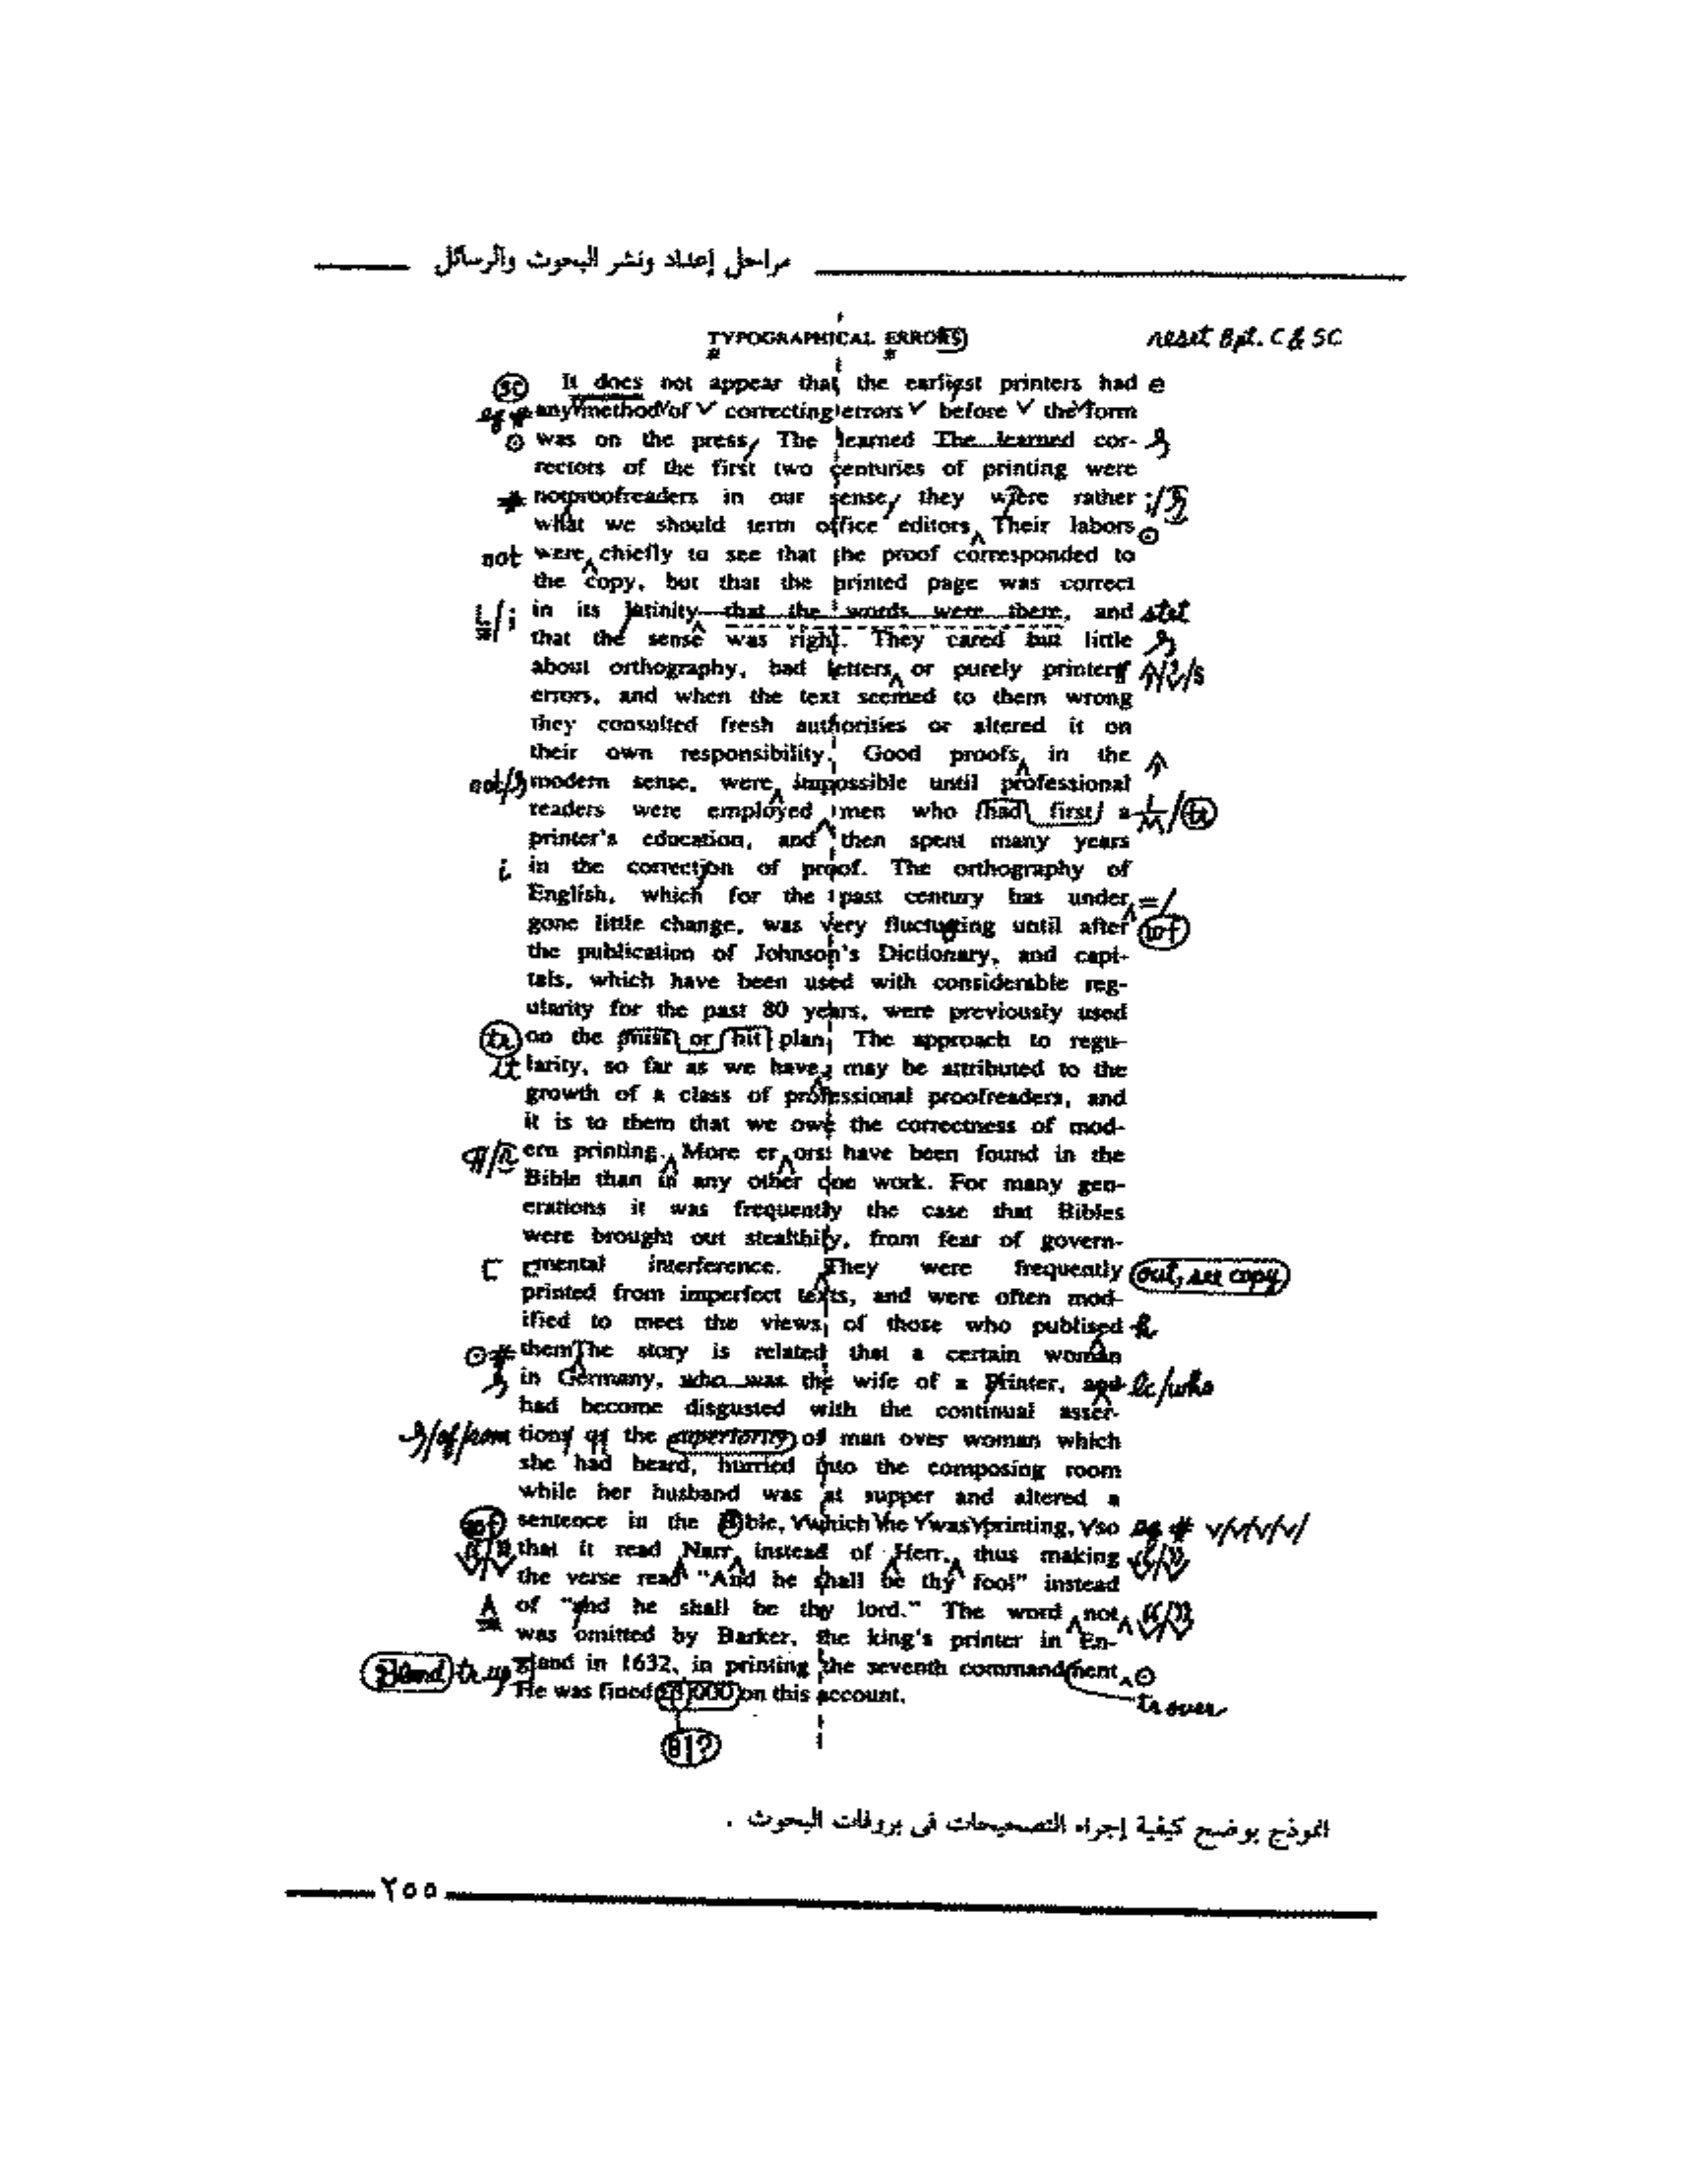 مراحل إعداد ونشر البحوث والرسائل
TYPOGRAPHICAL ERRORS
reset 8 pt. C & SC
sc It does not appear that the earliest printers had e
eq # any method of correcting errors before the form
⊙ was on the press, The learned The learned cor-
rectors of the first two centuries of printing were
# notproofreaders in our sense, they were rather ;/
what we should term office editors Their labors ⊙
not were chiefly to see that the proof corresponded to
the copy, but that the printed page was correct
in its latinity—that the words were there, and stet
that the sense was right. They cared but little
about orthography, bad letters or purely printers
errors, and when the text seemed to them wrong
they consulted fresh authorities or altered it on
their own responsibility. Good proofs in the
not/ modern sense, were impossible until professional
readers were employed men who had first a tr
printer's education, and then spent many years
i in the correction of proof. The orthography of
English, which for the past century has under =/
gone little change, was very fluctuating until after wf
the publication of Johnson's Dictionary, and capi-
tals, which have been used with considerable reg-
ularity for the past 80 years, were previously used
tr on the miss or hit plan. The approach to regu-
it larity, so far as we have, may be attributed to the
growth of a class of professional proofreaders, and
it is to them that we owe the correctness of mod-
¶/r ern printing. More er ors have been found in the
Bible than in any other one work. For many gen-
erations it was frequently the case that Bibles
were brought out stealthily, from fear of govern-
[ mental interference. They were frequently out, see copy
printed from imperfect texts, and were often mod-
ified to meet the views of those who publised h
⊙ # themThe story is related that a certain woman
in Germany, who was the wife of a Printer, and lc/who
had become disgusted with the continual asser-
/of/from tions of the superiority of man over woman which
she had heard, hurried into the composing room
while her husband was at supper and altered a
wf sentence in the Bible, which he was printing, so eq # v/v/v/v/
that it read Narr instead of Herr, thus making
the verse read "And he shall be thy fool" instead
of "and he shall be thy lord." The word not
was omitted by Barker, the king's printer in En-
gland in 1632, in printing the seventh commandment ⊙
He was fined £3,000 on this account.
tr over
انموذج يوضح كيفية إجراء التصحيحات فى بروفات البحوث .
٢٥٥